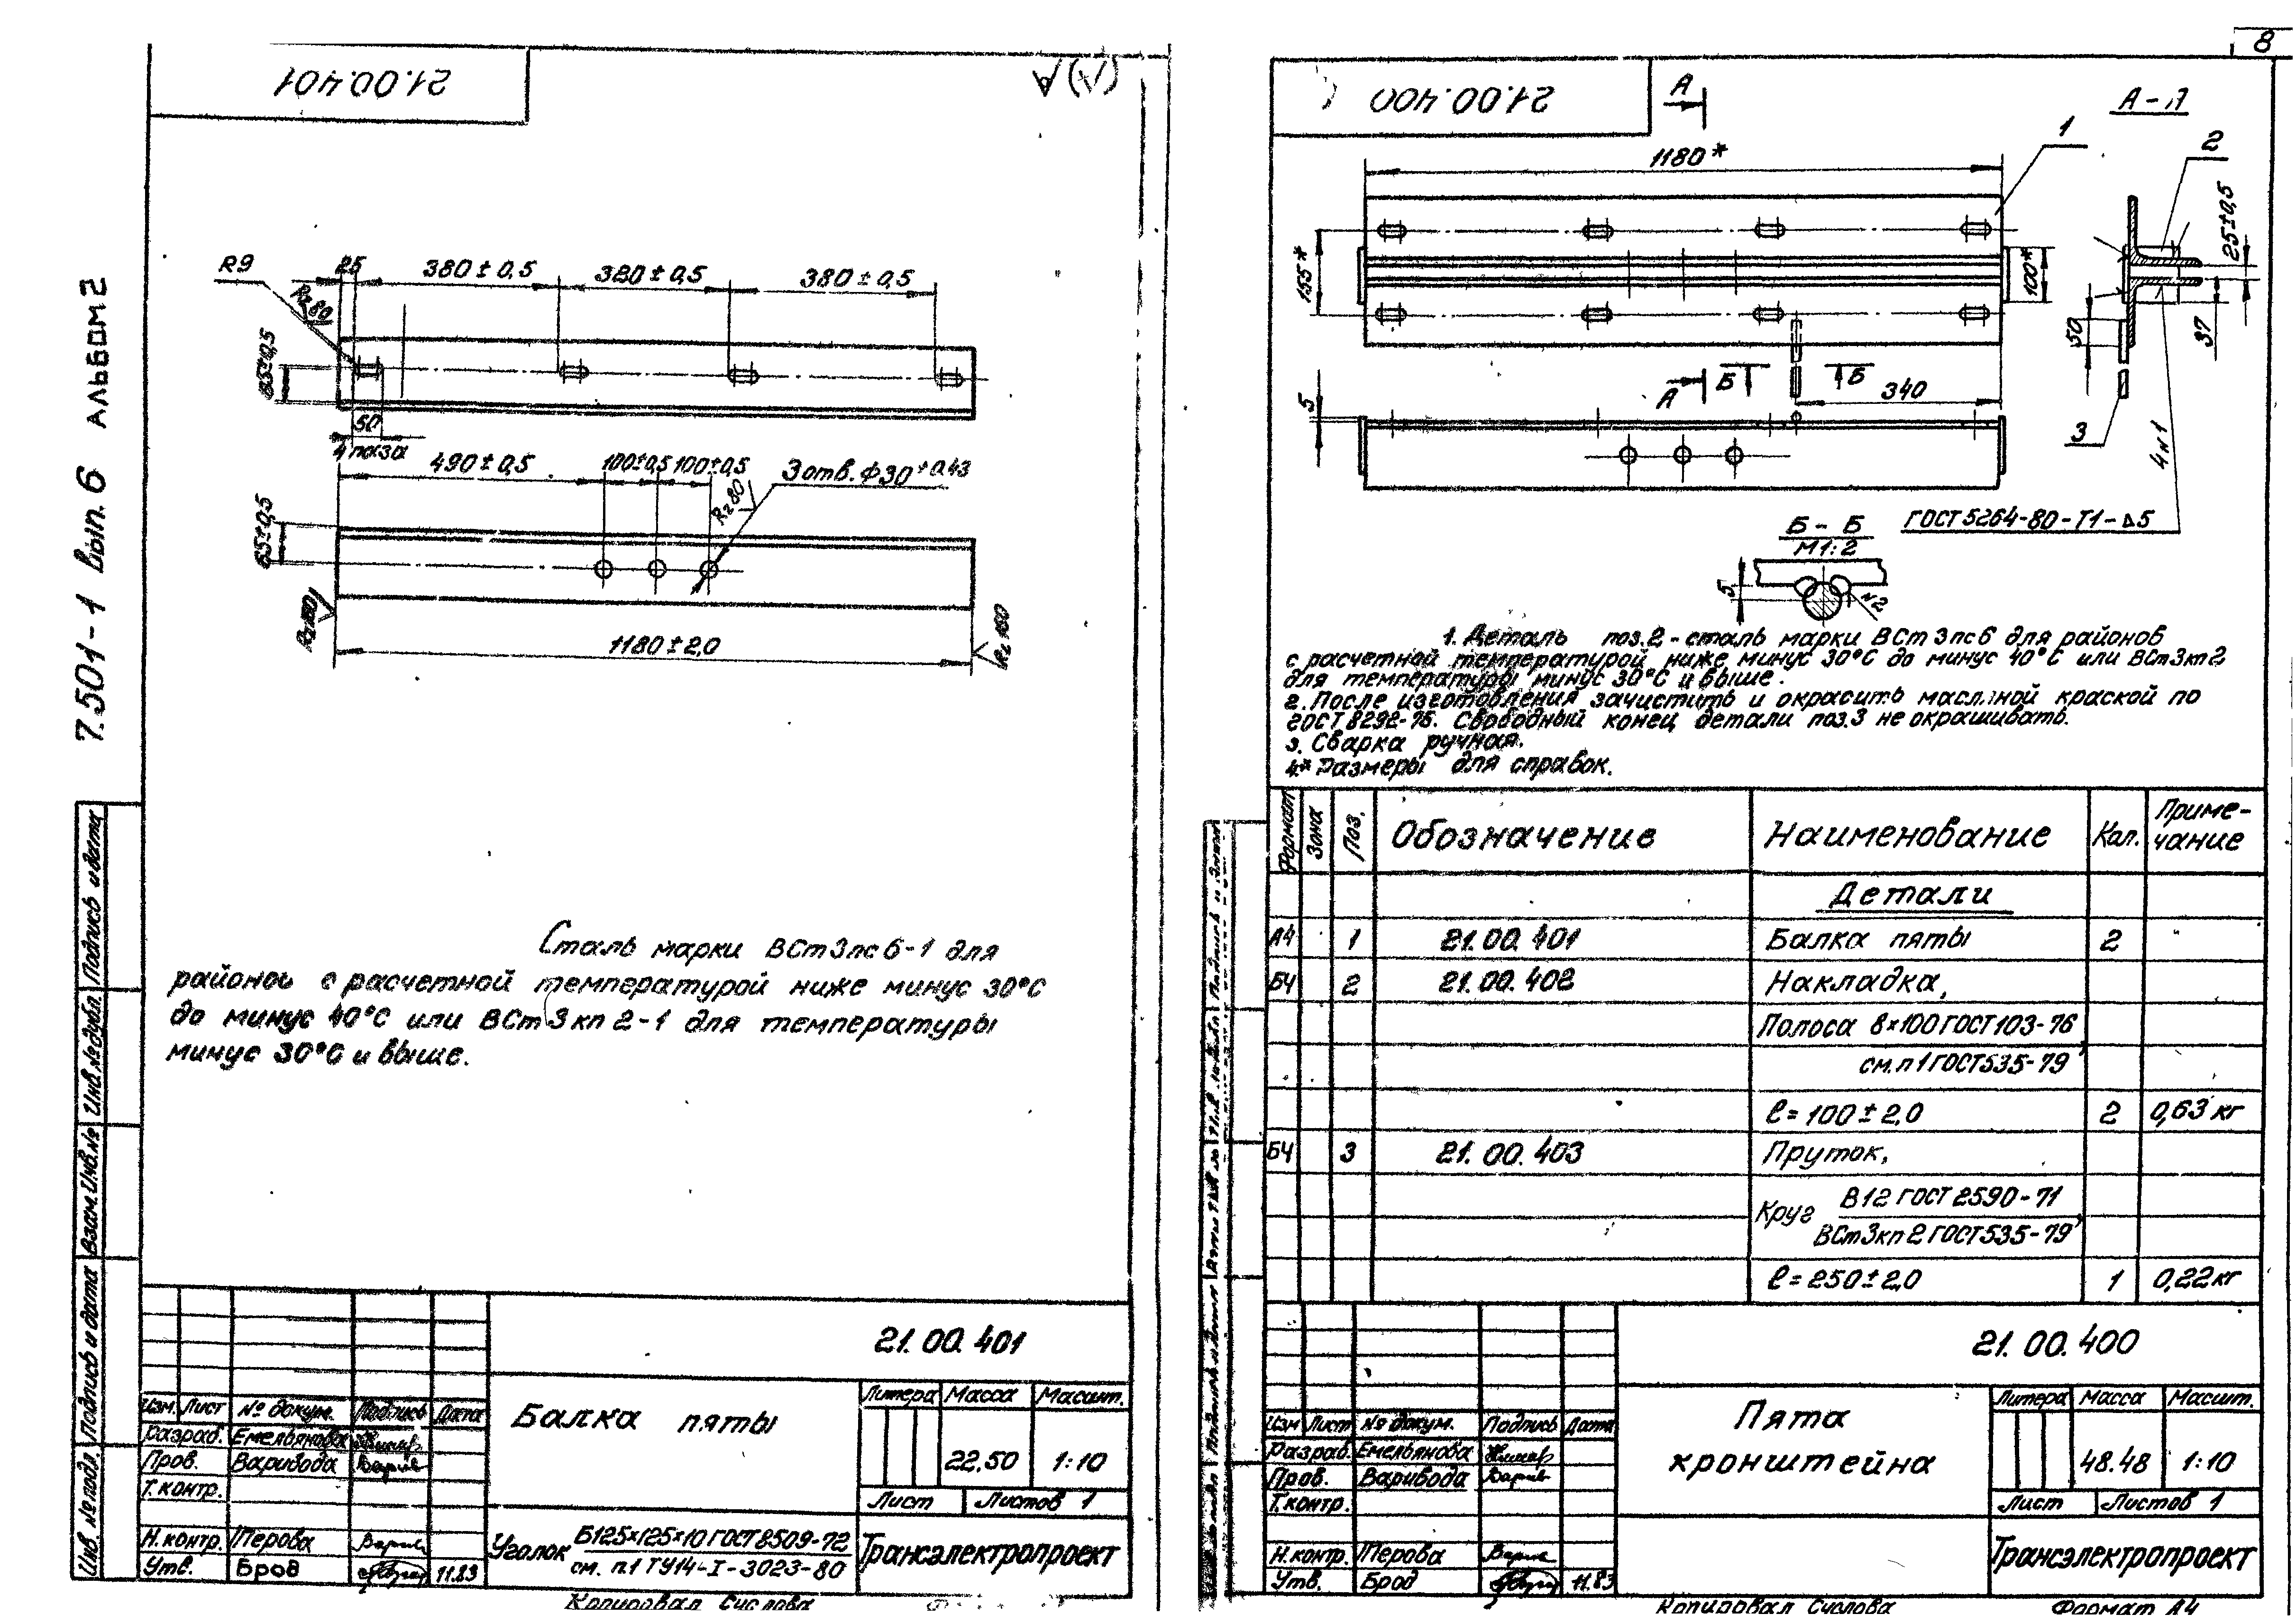 8
7.501-1 вып. 6 альбом 2
21.00.401
R9
25
380±0,5
380±0,5
380±0,5
Rz80
65±0,5
50
4 паза
490±0,5
100±0,5
100±0,5
3 отв. ф30+0.43
Rz80
65±0,5
Rz160
1180±2,0
Rz160
Сталь марки ВСт3пс6-1 для
районов с расчетной температурой ниже минус 30°С
до минус 40°С или ВСт3кп2-1 для температуры
минус 30°С и выше.
Подпись и дата
Инв.№ дубл.
Взам.Инв.№
Подпись и дата
Инв. № подл.
21.00.401
Изм. Лист № докум. Подпись Дата
Разраб. Емельянова
Пров. Варивода
Т.контр.
Н.контр. Перова
Утв. Брод 11.83
Балка пяты
Литера Масса Масшт.
22.50 1:10
Лист Листов 1
Уголок Б125×125×10 ГОСТ 8509-72
см. п.1 ТУ14-I-3023-80
Трансэлектропроект
Копировал Суслова
21.00.400
А
А-А
1180*
1
2
155*
100*
25±0,5
37
50
3
4 N1
А
Б
Б
340
5
ГОСТ 5264-80-Т1-⊿5
Б-Б
М1:2
5
N2
1. Деталь поз.2 - сталь марки ВСт3пс6 для районов
с расчетной температурой ниже минус 30°С до минус 40°С или ВСт3кп2
для температуры минус 30°С и выше.
2. После изготовления зачистить и окрасить масляной краской по
ГОСТ 8292-75. Свободный конец детали поз.3 не окрашивать.
3. Сварка ручная.
4.* Размеры для справок.
Формат Зона Поз. Обозначение Наименование Кол. Приме-
чание
Детали
А4 1 21.00.401 Балка пяты 2
БЧ 2 21.00.402 Накладка,
Полоса 8×100 ГОСТ 103-76
см. п1 ГОСТ 535-79,
ℓ=100±2,0 2 0,63 кг
БЧ 3 21.00.403 Пруток,
Круг В12 ГОСТ 2590-71
ВСт3кп2 ГОСТ 535-79,
ℓ=250±2,0 1 0,22 кг
21.00.400
Изм Лист № докум. Подпись Дата
Разраб. Емельянова
Пров. Варивода
Т.контр.
Н.контр. Перова
Утв. Брод 11.83
Пята
кронштейна
Литера Масса Масшт.
48.48 1:10
Лист Листов 1
Трансэлектропроект
Копировал Суслова
Формат А4